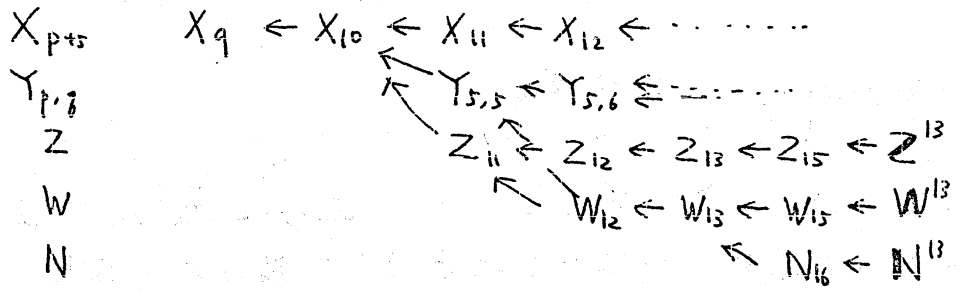 X_{p+5} X_9 ← X_{10} ← X_{11} ← X_{12} ← · · · · · · ·
Y_{p,q} Y_{5,5} ← Y_{5,6} ⇇ · · · · · · ·
Z Z_{11} ← Z_{12} ← Z_{13} ← Z_{15} ← Z^{13}
W W_{12} ← W_{13} ← W_{15} ← W^{13}
N N_{16} ← N^{13}